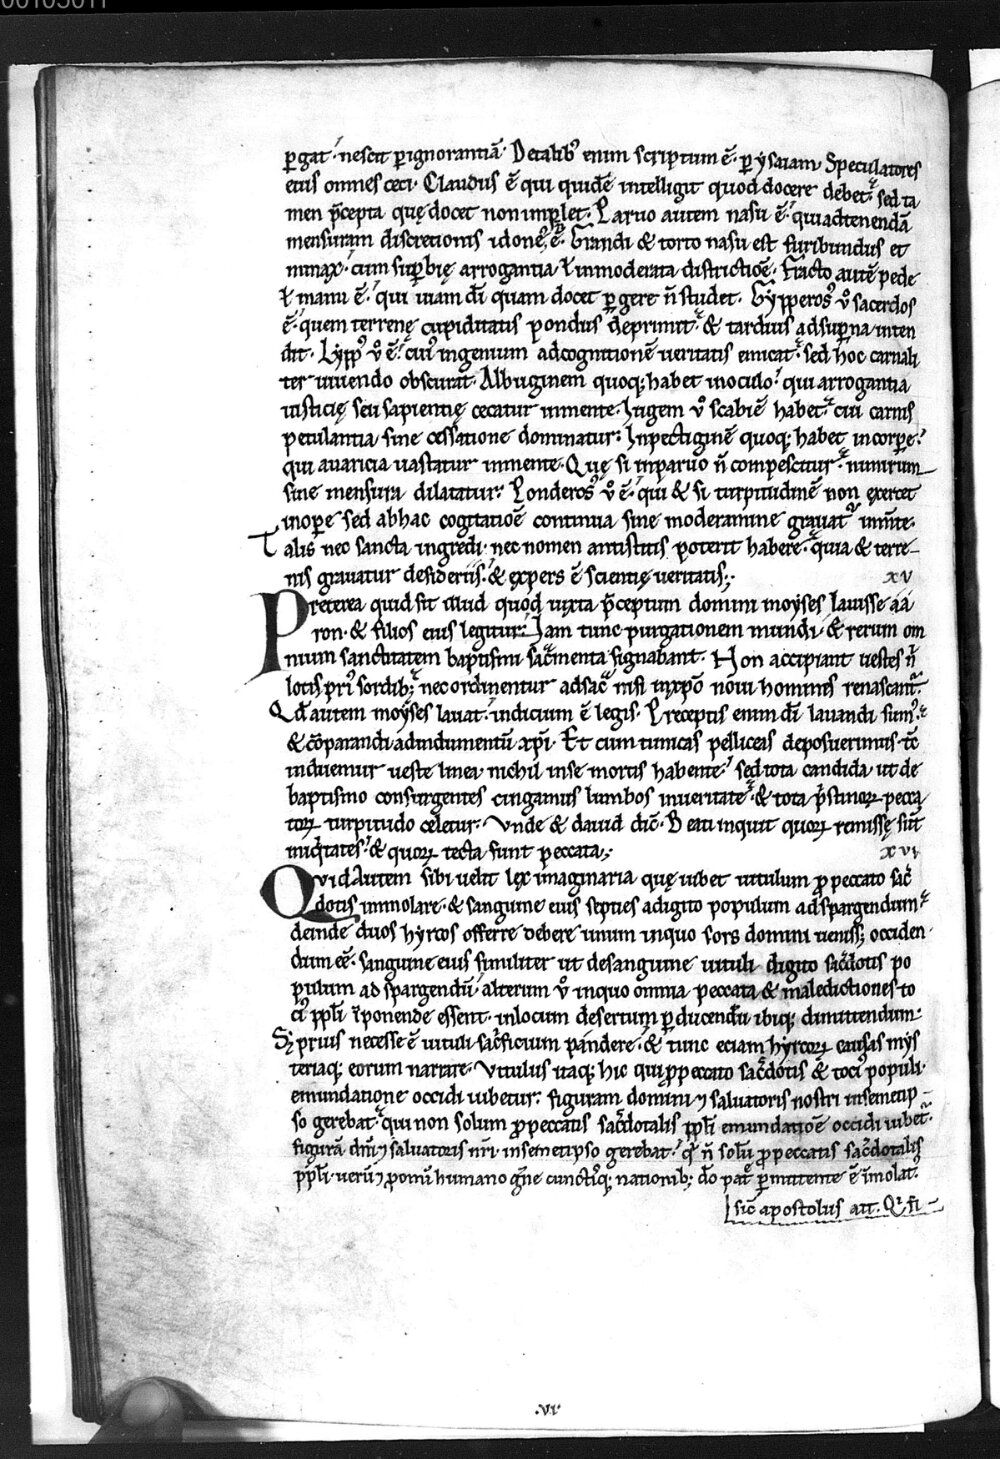 ꝑgat· nescit ꝑ ignorantiā· De talibꝰ enim scriptum ē· ꝑ ysaiam· Speculatores
eius omnes ceci· Claudus ē qui quidē intelligit quod docere debet· sed ta
men p̄cepta quę docet non implet· Paruo autem nasu ē· qui ad tenendā
mensuram discretionis idoneꝰ n̄ ē· Grandi & torto nasu est furibundus et
minax· cum suꝑbię arrogantia ł inmoderata districtiōe· Fracto autē pede
ł manu ē· qui uiam dī quam docet ꝑgere n̄ studet· Gypperosꝰ v̊ sacerdos
ē· quem terrenę cupiditatis pondus deprimit· & tardius ad suꝑna inten
dit· Lyppꝰ v̊ ē· cuiꝰ ingenium ad cognitionē ueritatis emicat· sed hoc carnali
ter uiuendo obscurat· Albuginem quoq; habet in oculo· qui arrogantia
iusticię seu sapientię cecatur in mente· Iugem v̊ scabiē habet· cui carnis
petulantia sine cessatione dominatur· Inpectiginē quoq; habet in corpe·
qui auaricia uastatur in mente· Quę si in paruo n̄ compescitur· nimirum
sine mensura dilatatur· Ponderosꝰ v̊ ē· qui & si turpitudinē non exercet
in opere sed ab hac cogitatiōe continua sine moderamine grauat᷑ in m̄te·
Talis nec sancta ingredi· nec nomen antistitis poterit habere· quia & terre
nis grauatur desideriis· & exꝑs ē scientię ueritatis;·
xv
Preterea quid sit illud quod iuxta p̄ceptum domini moyses lauisse aa
ron· & filios eius legitur· Iam tunc purgationem mundi· & rerum om
nium sanctitatem baptismi sac̄menta signabant· Non accipiant uestes n̄
lotis priꝰ sordibꝫ· nec ordinentur ad sac̄ nisi in xp̄o noui homines renascant᷑·
Qđ autem moyses lauat· indicium ē legis· Preceptis enim dī lauandi sumꝰ·
& cōparandi ad indumentū xp̄i· Et cum tunicas pelliceas deposuerimus· tc̄
induemur ueste linea· nichil in se mortis habente· sed tota candida ut de
baptismo consurgentes cingamus lumbos in ueritate· & tota p̄stinoꝝ pecca
toꝝ turpitudo celetur· Vnde & dauid dic̄· Beati inquit quoꝝ remissę sūt
iniq̄tates· & quoꝝ tecta sunt peccata;·
xvi
Qvid Autem sibi uelit lex imaginaria quę iubet uitulum pro peccato sac̄
dotis immolare· & sanguine eius septies a digito populum ad spargendum·
deinde duos hyrcos offerre debere unum in quo sors domini uenisset occiden
dum eē· sanguine eius similiter ut de sanguine uituli digito sac̄dotis po
pulum ad spargendū· alterum v̊ in quo omnia peccata & maledictiones to
ciꝰ ppl̄i īponende essent· in locum desertum ꝑducendū ibiq; dimittendum·
Sę prius necesse ē uituli sac̄ficium pandere· & tunc eciam hyrcoꝝ causas mys
teriaq; eorum narrare· Vitulus itaq; hic qui ꝓ peccato sac̄dotis & tociꝰ populi
emundatione occidi iubetur· figuram domini ⁊ saluatoris nostri in semetip
so gerebat· qui non solum ꝓ peccatis sac̄dotalis ppl̄i emundatiōe occidi iubet᷑·
figurā dn̄i ⁊ saluatoris nr̄i in semetipso gerebat· q̄ n̄ solū ꝓ peccatis sac̄dotalis
ppl̄i· uerū ⁊ ꝓ omī humano gn̄e cunctisq; nationibꝫ do pat᷑ ꝑmittente ē īmolatꝰ·
sic̄ apostolus ait· Qi fi
·vi·